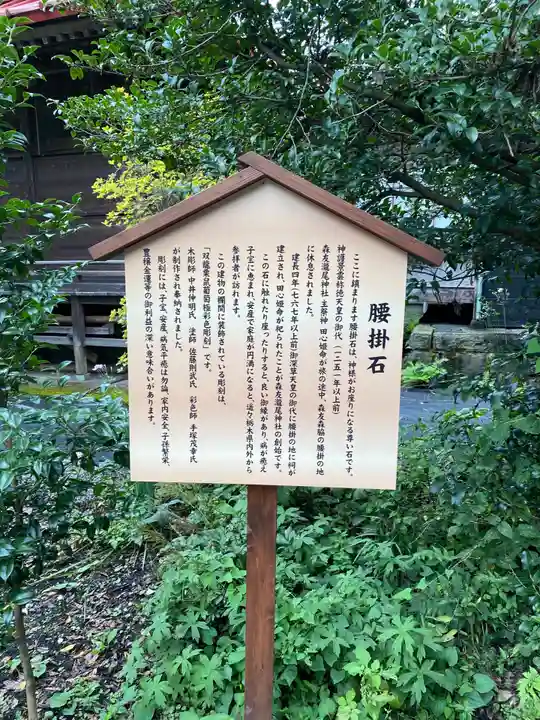 腰掛石
ここに鎮まります腰掛石は、神様がお座りになる尊い石です。
神護景雲称徳天皇の御代(一二五一年以上前)
森友瀧尾神社主祭神 田心姫命が旅の途中、森友森脇の腰掛の地
に休息されました。
建長四年(七六七年以上前)御深草天皇の御代に腰掛の地に祠が
建立され、田心姫命が祀られたことが森友瀧尾神社の創始です。
この石に触れたり座ったりすると、良い御縁があり、病が癒え
子宝に恵まれ、安産で家庭が円満になると、遥々栃木県内外から
参拝者が訪れます。
この建物の欄間に装飾されている彫刻は、
「双龍栗鼠葡萄極彩色彫刻」です。
木彫師 中井伸明氏 塗師 佐藤則武氏 彩色師 手塚茂幸氏
が制作され奉納されました。
彫刻には、子宝、安産、病気平癒は勿論、家内安全、子孫繁栄、
豊穣金運等の御利益の深い意味合いがあります。